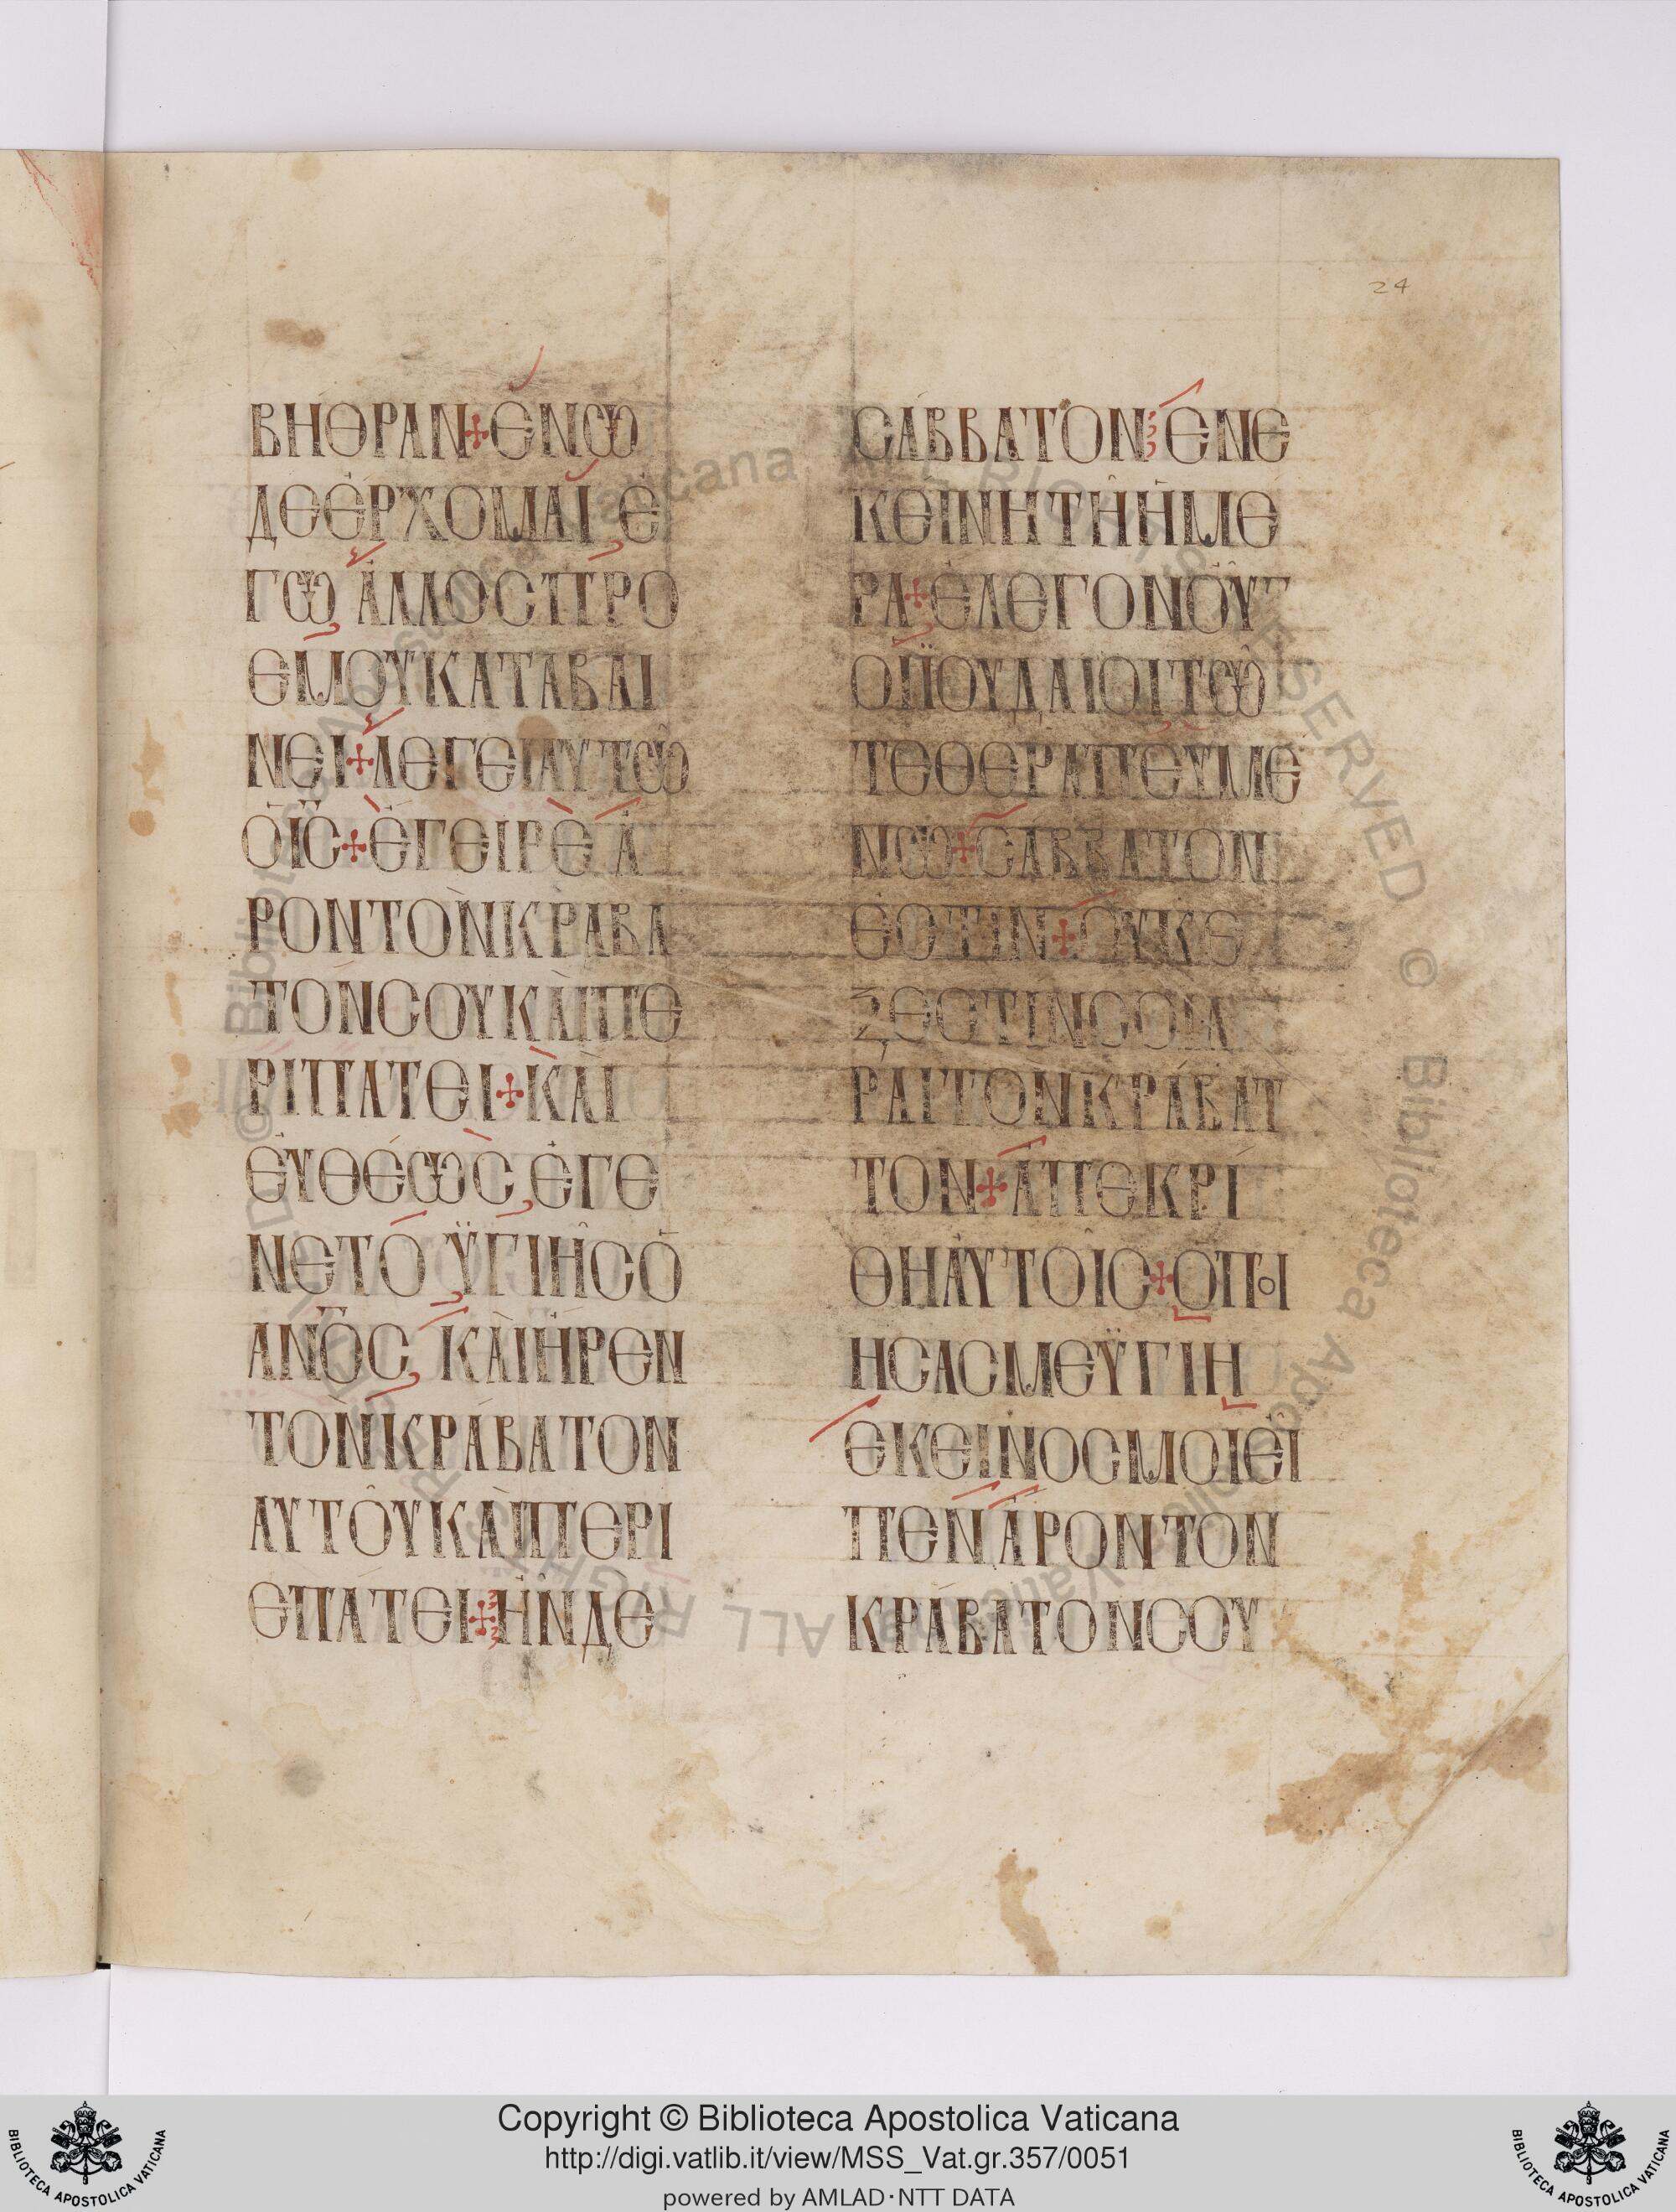 24
ΒΗΘΡΑΝ+ΕΝΩ
ΔΕΕΡΧΟΜΑΙ Ε
ΓΩ ΑΛΛΟCΠΡΟ
ΕΜΟΥΚΑΤΑΒΑΙ
ΝΕΙ+ΛΕΓΕΙΑΥΤΩ
ΟΙC+ΕΓΕΙΡΕ Α
ΡΟΝΤΟΝΚΡΑΒΑ
ΤΟΝCΟΥΚΑΙΠΕ
ΡΙΠΑΤΕΙ+ΚΑΙ
ΕΥΘΕΩC,ΕΓΕ
ΝΕΤΟ ΫΓΙΗCΟ
ΑΝΟC, ΚΑΙΗΡΕΝ
ΤΟΝΚΡΑΒΑΤΟΝ
ΑΥΤΟΥΚΑΙΠΕΡΙ
ΕΠΑΤΕΙ+ΗΝΔΕ
CΑΒΒΑΤΟΝ ΕΝΕ
ΚΕΙΝΗΤΗΗΜΕ
ΡΑ+ΕΛΕΓΟΝΟΥ
ΟΙΪΟΥΔΑΙΟΙΤΩ
ΤΕΘΕΡΑΠΕΥΜΕ
ΝΩ+CΑΒΒΑΤΟΝ
ΕCΤΙΝ+ΟΥΚΕ
ΞΕCΤΙΝCΟΙΑ
ΡΑΙΤΟΝΚΡΑΒΑΤ
ΤΟΝ+ΑΠΕΚΡΙ
ΘΗΑΥΤΟΙC+ΟΠΟΙ
ΗCΑCΜΕΫΓΙΗ
ΕΚΕΙΝΟCΜΟΙΕΙ
ΠΕΝ ΑΡΟΝΤΟΝ
ΚΡΑΒΑΤΟΝCΟΥ
© Biblioteca Apostolica Vaticana ALL RIGHTS RESERVED
Copyright © Biblioteca Apostolica Vaticana
http://digi.vatlib.it/view/MSS_Vat.gr.357/0051
powered by AMLAD·NTT DATA
BIBLIOTECA APOSTOLICA VATICANA
BIBLIOTECA APOSTOLICA VATICANA